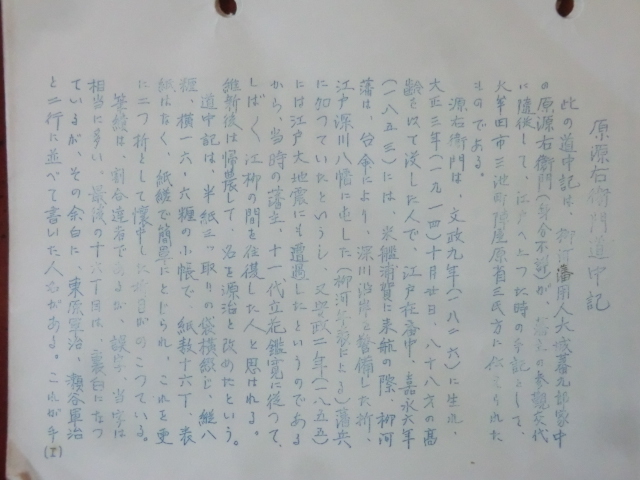 原源右衛門道中記
此の道中記は、柳河藩用人大城蕃九郎家中
の原源右衛門（身分不詳）が、藩主の参覲交代
に随従して、江戸へ上つた時の手記として、
大牟田市三池町 原省三氏方に伝えられた
ものである。
源右衛門は、文政九年（一八二六）に生れ、
大正三年（一九一四）十月廿日、八十八才の高
齢を以て没した人で、江戸在番中、嘉永六年
（一八五三）には、米艦浦賀に来航の際、柳河
藩は、台命により、深川沿岸を警備した折、
江戸深川八幡に屯した（柳河 による）藩兵
に加つていたというし、又安政二年（一八五五）
には江戸大地震にも遭遇したというのである
から、当時の藩主、十一代立花鑑寛に従つて、
しばしば、江柳の間を往復した人と思はれる。
維新後は帰農して、名を源治と改めたという。
道中記は、半紙三ッ取りの袋横綴ぢ、縦八
糎、横一六・六糎の小帳で、紙数十六丁、表
紙はなく、紙縒で簡単にとじられ、これを更
に二つ折として懐中した折目がのこつている。
筆蹟は、割合達者であるが、誤字、当字は
相当に多い。最後の十六丁目は、裏白になつ
ているが、その余白に、栗原軍治、瀬谷軍治
と二行に並べて書いた人名がある。これが手
(1)